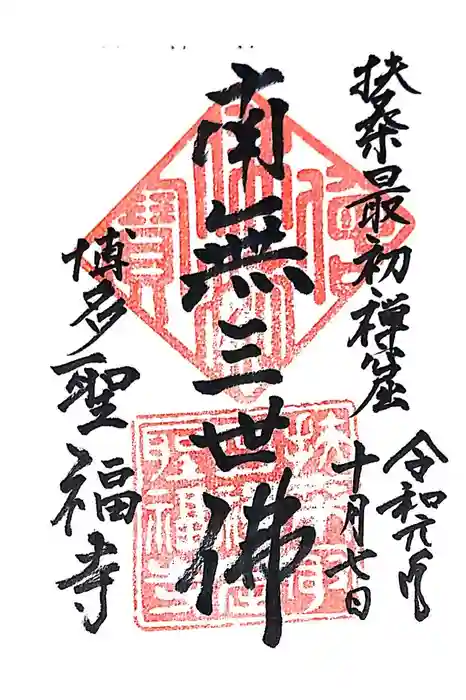 扶桑最初禅窟
令和元年
十月七日
南無三世佛
博多聖福寺